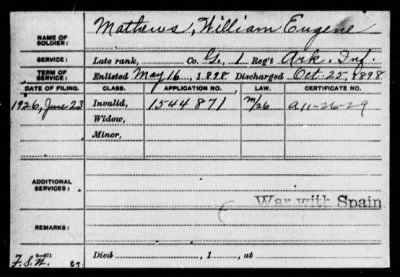 NAME OF SOLDIER: Mathews, William Eugene
SERVICE: Late rank, Co. G., 1 Reg't Ark. Inf.
TERM OF SERVICE: Enlisted May 16, 1898 Discharged Oct. 25, 1898
DATE OF FILING. CLASS. APPLICATION NO. LAW. CERTIFICATE NO.
1926, June 23 Invalid, 1544871 A11-26-29
Widow,
Minor,
ADDITIONAL SERVICES:
War with Spain
REMARKS:
Died , 1 , at